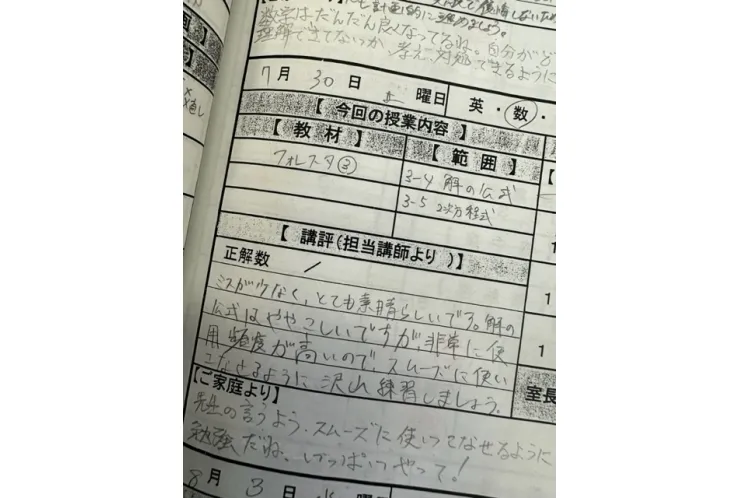 にも計画的に進めましょう。
数学はだんだん良くなってるね。自分がど
理解できてないか、考え、対処できるように
7月 30日 土 曜日 英・数・
【 今回の授業内容 】
【 教 材 】 【 範 囲 】
フォレスタ③ 3-4 解の公式
3-5 2次方程式
【 講評(担当講師より )】
正解数 /
ミスが少なく、とても素晴らしいです。解の
公式はややこしいですが、非常に使
用頻度が高いので、スムーズに使い
こなせるように沢山練習しましょう。
室長
【ご家庭より】
先生の言うよう、スムーズに使いこなせるように
勉強だね、いっぱいやって!
8月 3日 水 曜日